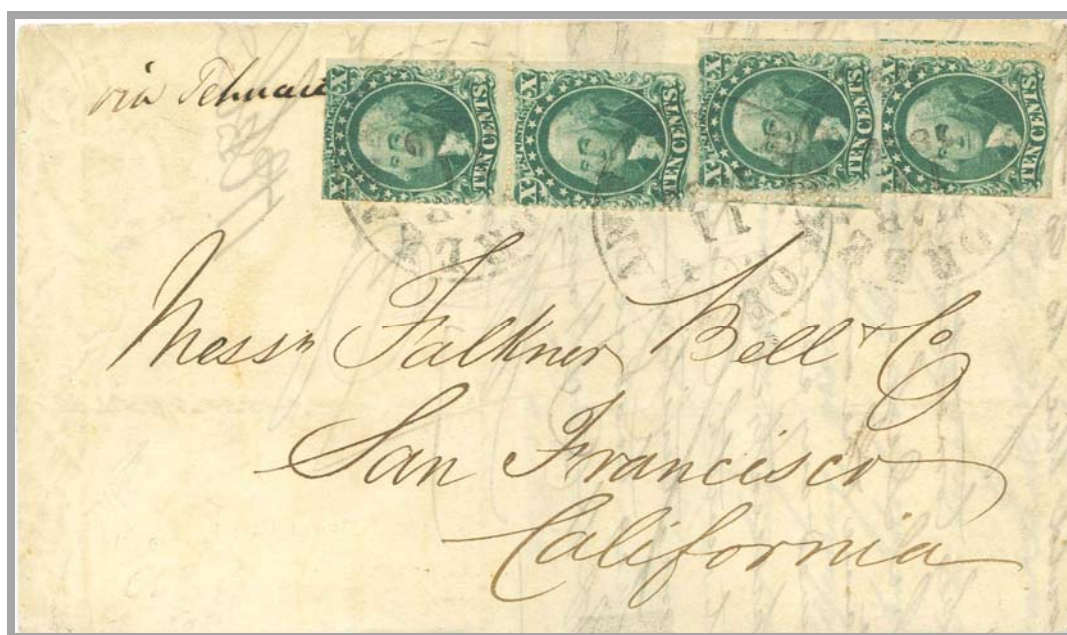 via Tehuan
X TEN CENTS. X
X TEN CENTS. X
X TEN CENTS. X
X TEN CENTS. X
11
Messrs Falkner, Bell & Co
San Francisco
California